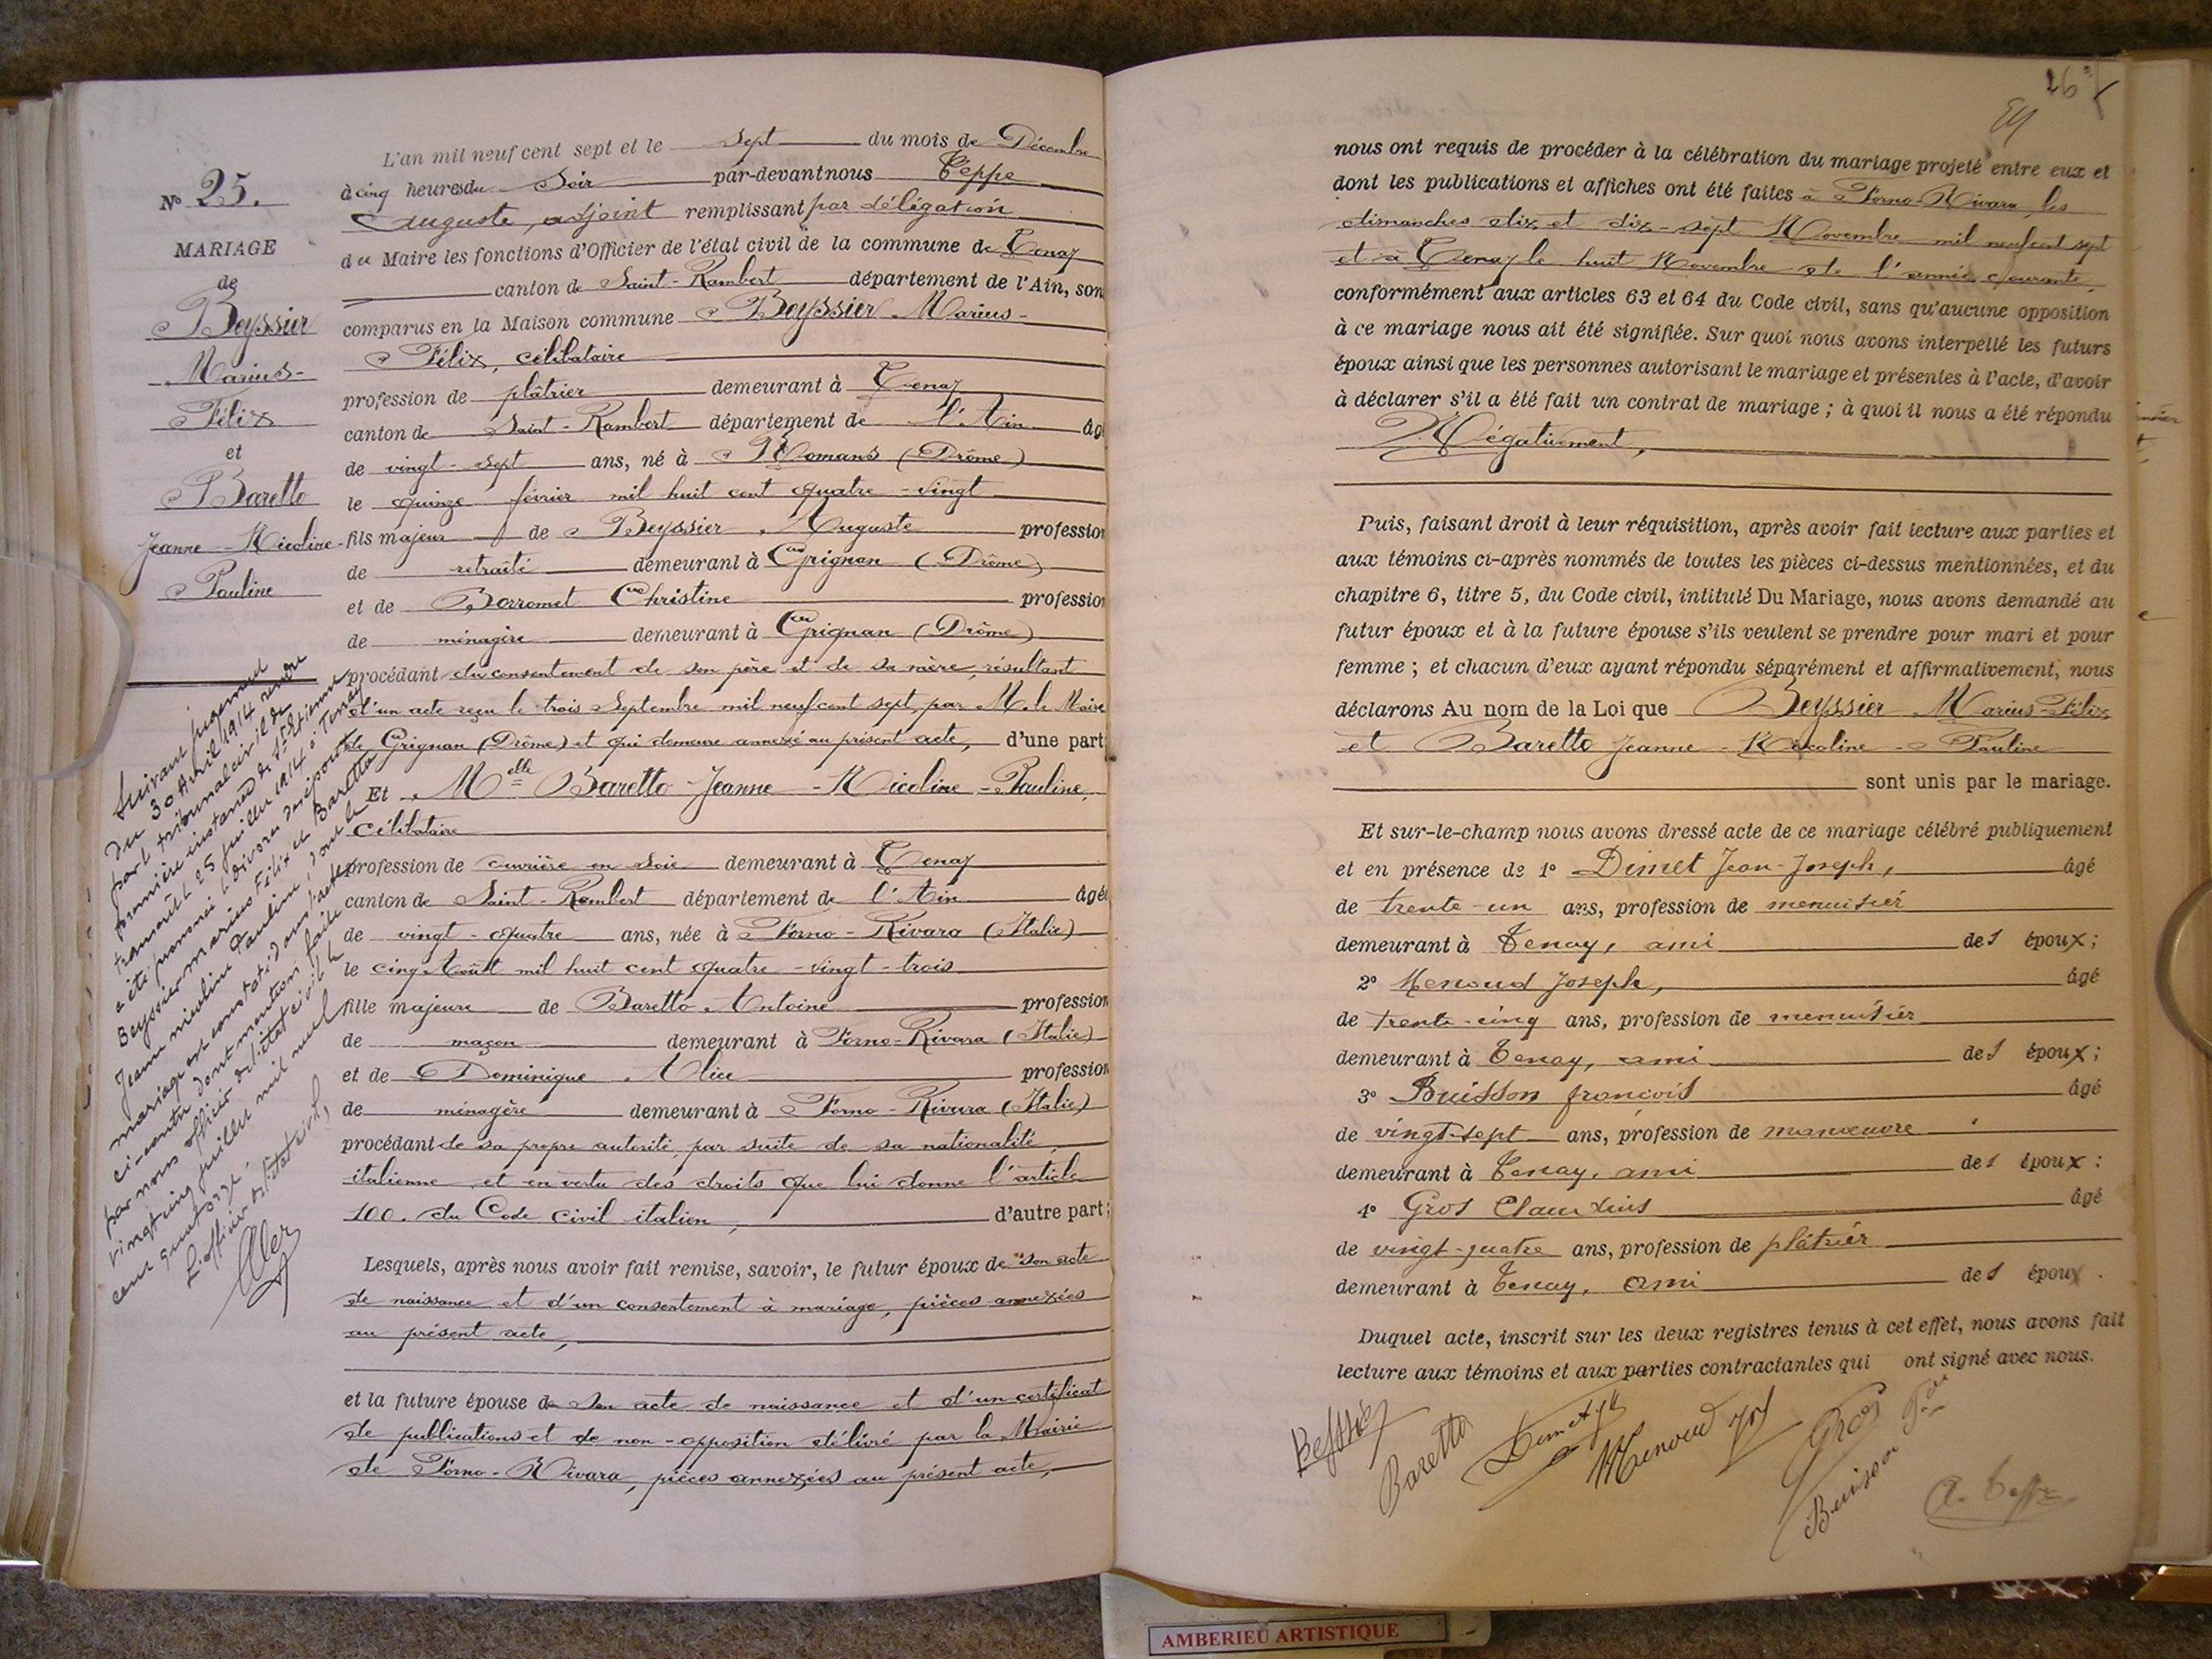 N° 25.
MARIAGE
de
Beyssier
Marius-
Félix
et
Baretto
Jeanne-Nicoline-
Pauline
Suivant jugement
du 30 Avril 1914 rendu
par le tribunal civil de
première instance de St Etienne
transcrit le 25 juillet 1914 à Tenay
a été prononcé le divorce des époux
Beyssier marius Félix et Baretto
Jeanne nicoline Pauline, dont le
mariage est constaté dans l'acte
ci-contre dont mention faite
par nous officier de l'état civil le
vingt cinq juillet mil neuf
cent quatorze.
L'officier de l'état civil,
L'an mil neuf cent sept et le sept du mois de Décembre
à cinq heures du Soir par-devant nous Teppe
Auguste, adjoint remplissant par délégation
du Maire les fonctions d'Officier de l'état civil de la commune de Tenay
canton de Saint-Rambert département de l'Ain, son
comparus en la Maison commune Beyssier Marius-
Félix, célibataire
profession de plâtrier demeurant à Tenay
canton de Saint-Rambert département de l'Ain âgé
de vingt-sept ans, né à Romans (Drôme)
le quinze février mil huit cent quatre-vingt
fils majeur de Beyssier Auguste profession
de retraité demeurant à Grignan (Drôme)
et de Borromet Christine profession
de ménagère demeurant à Grignan (Drôme)
procédant du consentement de son père et de sa mère, résultant
d'un acte reçu le trois Septembre mil neuf cent sept, par M. le Maire
de Grignan (Drôme) et qui demeure annexé au présent acte, d'une part;
Et Melle Baretto Jeanne-Nicoline-Pauline,
célibataire
profession de ouvrière en soie demeurant à Tenay
canton de Saint-Rambert département de l'Ain âgée
de vingt-quatre ans, née à Forno-Rivara (Italie)
le cinq Août mil huit cent quatre-vingt-trois
fille majeure de Baretto Antoine profession
de maçon demeurant à Forno-Rivara (Italie)
et de Dominique Alice profession
de ménagère demeurant à Forno-Rivara (Italie)
procédant de sa propre autorité, par suite de sa nationalité
italienne et en vertu des droits que lui donne l'article
100. du Code civil italien, d'autre part;
Lesquels, après nous avoir fait remise, savoir, le futur époux de son acte
de naissance et d'un consentement à mariage, pièces annexées
au présent acte,
et la future épouse de son acte de naissance et d'un certificat
de publications et de non-opposition délivré par la Mairie
de Forno-Rivara, pièces annexées au présent acte,
26
nous ont requis de procéder à la célébration du mariage projeté entre eux et
dont les publications et affiches ont été faites à Forno-Rivara, les
dimanches dix et dix-sept Novembre mil neuf cent sept
et à Tenay le huit Novembre de l'année courante,
conformément aux articles 63 et 64 du Code civil, sans qu'aucune opposition
à ce mariage nous ait été signifiée. Sur quoi nous avons interpellé les futurs
époux ainsi que les personnes autorisant le mariage et présentes à l'acte, d'avoir
à déclarer s'il a été fait un contrat de mariage ; à quoi il nous a été répondu
Négativement,
Puis, faisant droit à leur réquisition, après avoir fait lecture aux parties et
aux témoins ci-après nommés de toutes les pièces ci-dessus mentionnées, et du
chapitre 6, titre 5, du Code civil, intitulé Du Mariage, nous avons demandé au
futur époux et à la future épouse s'ils veulent se prendre pour mari et pour
femme ; et chacun d'eux ayant répondu séparément et affirmativement, nous
déclarons Au nom de la Loi que Beyssier Marius-Félix
et Baretto Jeanne-Nicoline-Pauline
sont unis par le mariage.
Et sur-le-champ nous avons dressé acte de ce mariage célébré publiquement
et en présence de 1° Dimet Jean-Joseph, âgé
de trente-un ans, profession de menuisier
demeurant à Tenay, ami de l époux;
2° Menoud Joseph, âgé
de trente-cinq ans, profession de menuisier
demeurant à Tenay, ami de l époux;
3° Buisson françois âgé
de vingt-sept ans, profession de manœuvre
demeurant à Tenay, ami de l époux;
4° Gros Claudius âgé
de vingt-quatre ans, profession de plâtrier
demeurant à Tenay, ami de l époux.
Duquel acte, inscrit sur les deux registres tenus à cet effet, nous avons fait
lecture aux témoins et aux parties contractantes qui ont signé avec nous.
Beyssier
Baretto
Dimet
Menoud
Gros
Buisson
A. Teppe
AMBERIEU ARTISTIQUE